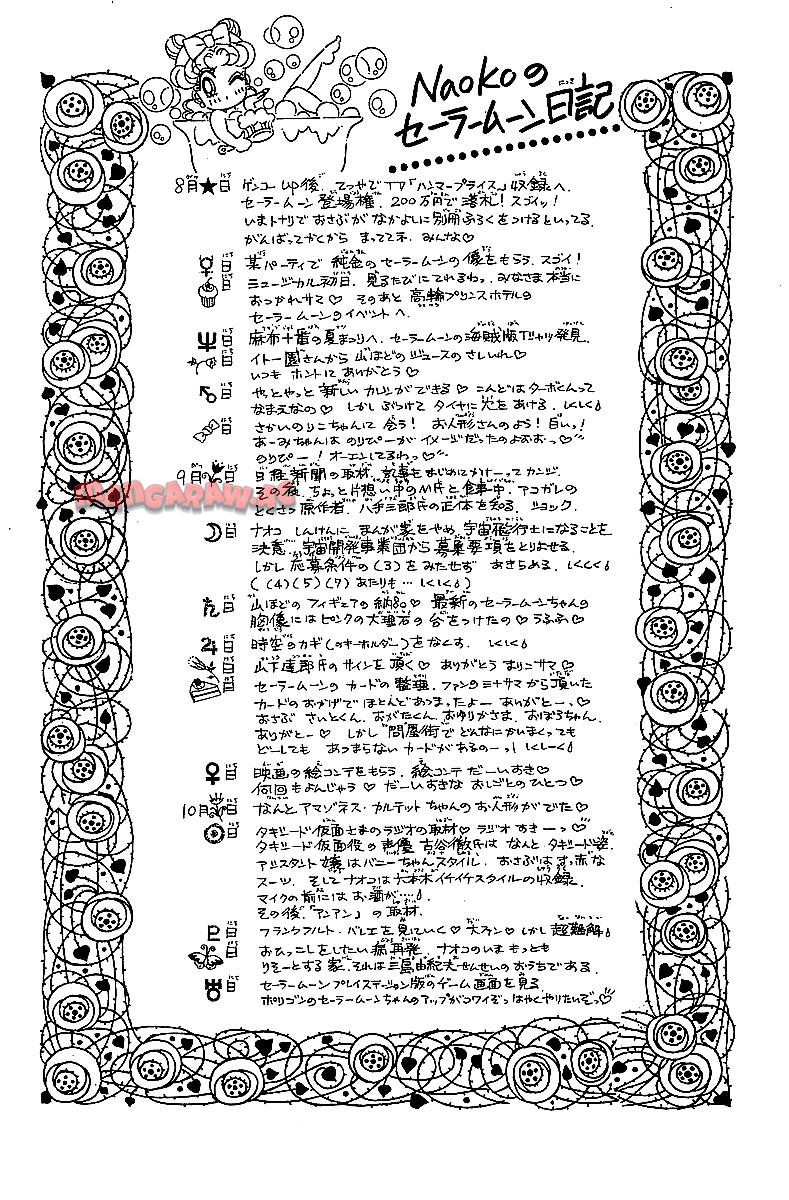 Naokoの
セーラームーン日記
8月★日 ゲンコーup後、てつやでTV「ハンマープライス」収録へ。
セーラームーン登場権、200万円で落札!スゴイッ!
いまトナリでおさぶがなかよしに別冊ふろくをつけるといってる。
がんばってかくから まっててネ、みんな♡
♀日 某パーティで 純金のセーラームーンの像をもらう、スゴイ!
日 ミュージカル初日、見るたびにてれるわっ、みなさま本当に
おつかれサマ♡ そのあと 高輪プリンスホテルの
セーラームーンのイベントへ。
♆日 麻布十番の夏まつりへ、セーラームーンの海賊版Tシャツ発見。
日 イトー園さんから 山ほどのジュースのさしいれ♡
いつも ホントに ありがとう♡
♂日 やっとやっと 新しい カレシができる♡ こんどはターボくんって
なまえなの♡ しかし ぶつけて タイヤに穴をあける、しくしく
日 さかいのりこちゃんに 会う! お人形さんのよう! 白いっ!
あーみちゃんは のりぴーが イメージだったのよおおっ♡
のりぴー! オーエンしてるわっ♡
9月日 日経新聞の取材、記事もまじめでかけーってカンジ。
その夜、ちょっと片想い中のM氏と食事中、アコガレの
とくさつ原作者、八手三郎氏の正体を知る、ショック。
☽日 ナオコ しんけんに、まんが家をやめ、宇宙飛行士になることを
決意、宇宙開発事業団から 募集要項をとりよせる。
しかし 応募条件の(3)をみたせず あきらめる、しくしく
((4)(5)(7)あたりも…しくしく)
日 山ほどのフィギュアの納品♡ 最新のセーラームーンちゃんの
胸像にはピンクの大理石の台をつけたの♡うふふ♡
♃日 時空のカギ(のキーホルダー)をなくす、しくしく
日 山下達郎氏のサインを頂く♡ ありがとう まりこサマ♡
日 セーラームーンの カードの 整理、ファンのミナサマから頂いた
カードのおかげで ほとんどあつまったよー ありがとーっ♡
おさぶ さいとくん、おがたくん、おゆりかさま、おぼろちゃん、
ありがとー♡ しかし 問屋街で どんなにかいまくっても
どーしても あつまらない カードがあるのーっ! しくしーく
♀日 映画の絵コンテをもらう、絵コンテ だーいすき♡
何回もよんじゃう♡ だーいすきな おしごとの ひとつ♡
10月日 なんと アマゾネス・カルテットちゃんのお人形ができた♡
☉日 タキシード仮面さまのラジオの取材♡ ラジオ すきーっ♡
タキシード仮面役の 声優 古谷徹氏は なんと タキシード姿。
アシスタント嬢はバニーちゃんスタイル、おさぶはまっ赤な
スーツ、そしてナオコは六本木イケイケスタイルの収録。
マイクの前には お酒が…
その後「アンアン」の取材。
♇日 フランクフルト・バレエを見ていく♡ 大ファン♡ しかし 超難解
日 おひっこしをしたい病再発、ナオコのいま もっとも
りそーとする 家、それは三島由紀夫せんせいのおうちである。
♅日 セーラームーン プレイステーション版のゲーム画面を見る
ポリゴンのセーラームーンちゃんのアップがカワイぞっはやくやりたいぞっ♡
MANGARAW.AC